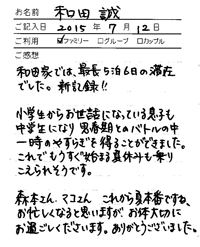 お名前 和田 誠
ご記入日 2015年 7月 12日
ご利用 ☑ファミリー □グループ □カップル
ご感想
和田家では、最長5泊6日の滞在
でした。新記録!!
小学生からお世話になっている息子も
中学生になり思春期とのバトルの中
一時のやすらぎを得ることができました。
これでもうすぐ始まる夏休みも乗り
こえられそうです。
森本さん、マコさん これから夏本番ですね、
お忙しくなると思いますが お体大切に
お過ごしくださいます。ありがとうございました。